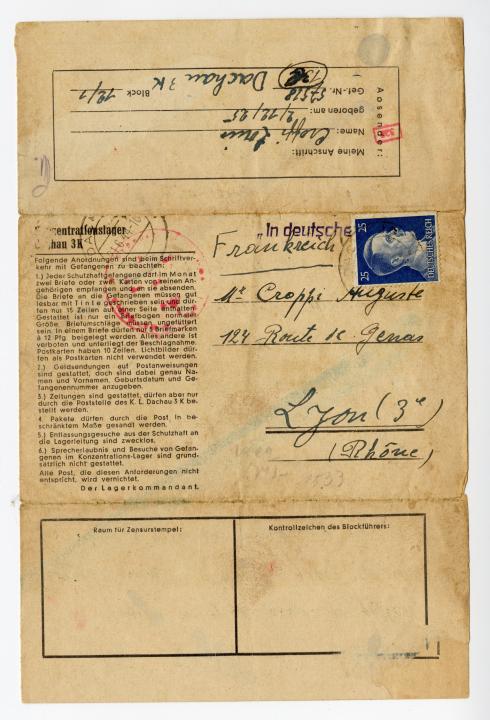 Absender:
Meine Anschrift:
Name: Croppi Louis
geboren am: 2/12/25
Gef.-Nr.
Dachau 3 K
Block 12/1
Konzentrationslager
Dachau 3K
Folgende Anordnungen sind beim Schriftver-
kehr mit Gefangenen zu beachten:
1.) Jeder Schutzhaftgefangene darf im Monat
zwei Briefe oder zwei Karten von seinen An-
gehörigen empfangen und an sie absenden.
Die Briefe an die Gefangenen müssen gut
lesbar mit Tinte geschrieben sein und dür-
fen nur 15 Zeilen auf einer Seite enthalten.
Gestattet ist nur ein Briefbogen normaler
Größe. Briefumschläge müssen ungefüttert
sein. In einem Briefe dürfen nur 5 Briefmarken
à 12 Pfg. beigelegt werden. Alles andere ist
verboten und unterliegt der Beschlagnahme.
Postkarten haben 10 Zeilen. Lichtbilder dür-
fen als Postkarten nicht verwendet werden.
2.) Geldsendungen auf Postanweisungen
sind gestattet, doch sind dabei genau Na-
men und Vornamen, Geburtsdatum und Ge-
fangenennummer anzugeben.
3.) Zeitungen sind gestattet, dürfen aber nur
durch die Poststelle des K. L. Dachau 3 K be-
stellt werden.
4. Pakete dürfen durch die Post in be-
schränktem Maße gesandt werden.
5.) Entlassungsgesuche aus der Schutzhaft an
die Lagerleitung sind zwecklos.
6.) Sprecherlaubnis und Besuche von Gefan-
genen im Konzentrations-Lager sind grund-
sätzlich nicht gestattet.
Alle Post, die diesen Anforderungen nicht
entspricht, wird vernichtet.
Der Lagerkommandant.
„In deutsche
Frankreich
25 25
25
DEUTSCHES REICH
Mr Croppi Auguste
124 Route de Genas
Lyon (3e)
(Rhône)
Raum für Zensurstempel:
Kontrollzeichen des Blockführers: